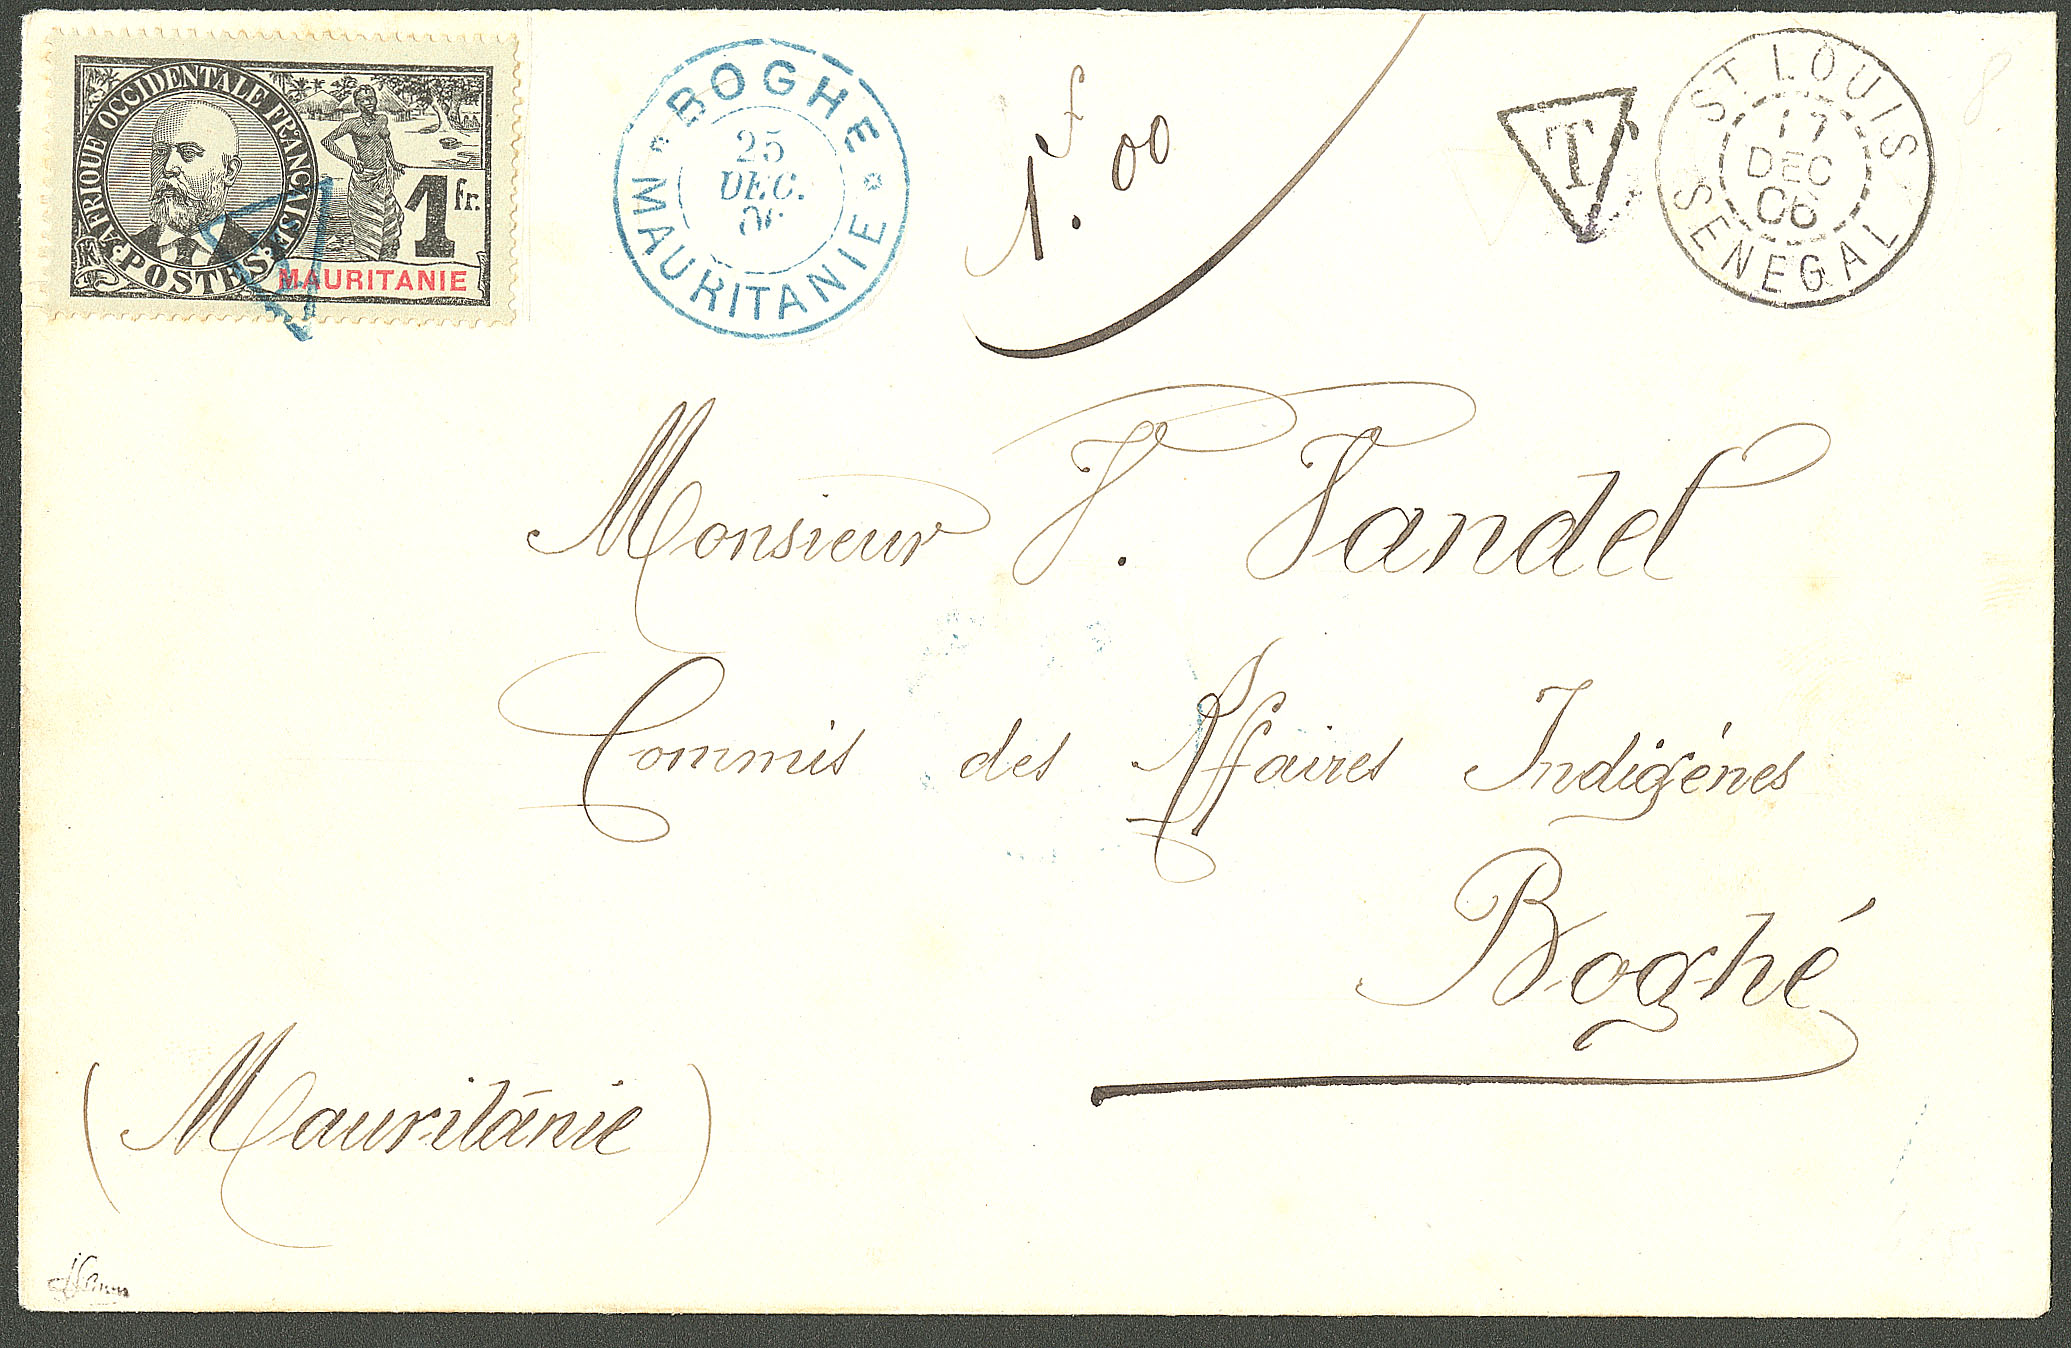 AFRIQUE OCCIDENTALE FRANÇAISE
POSTES
1 fr.
MAURITANIE
T
BOGHE
25
DEC.
MAURITANIE
1.f 00
T
ST LOUIS
17
DEC
06
SENEGAL
Monsieur V. Vandel
Commis des Affaires Indigénes
Boghé
(Mauritanie)